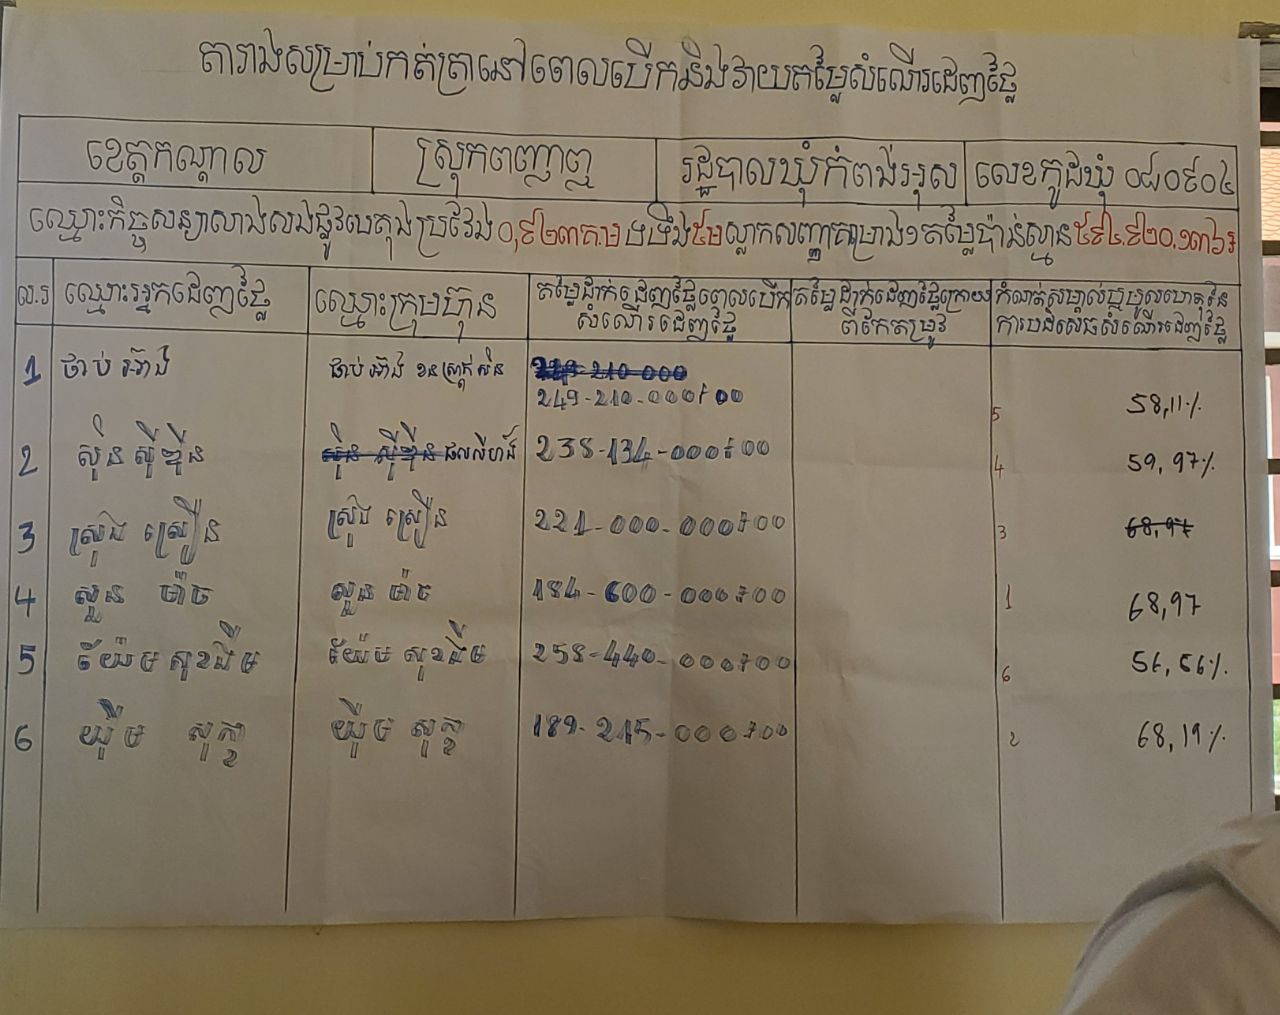 តារាងសម្រាប់កត់ត្រានៅពេលបើកនិងវាយតម្លៃសំណើរដេញថ្លៃ
ខេត្តកណ្តាល ស្រុកពញាឮ រដ្ឋបាលឃុំកំពង់អុស លេខកូដឃុំ ០៨០៩០៤
ឈ្មោះកិច្ចសន្យាសាងសង់ផ្លូវបេតុងប្រវែង ០,៩២៣គ.ម ទទឹង ៥ម ស្លាកសញ្ញាគម្រោង១ តម្លៃប៉ាន់ស្មាន ៥៩៤.៩២០.១៣៦៛
ល.រ ឈ្មោះអ្នកដេញថ្លៃ ឈ្មោះក្រុមហ៊ុន តម្លៃដាក់ដេញថ្លៃពេលបើក តម្លៃដាក់ដេញថ្លៃក្រោយ កំណត់សម្គាល់ឬមូលហេតុនៃ
សំណើរដេញថ្លៃ ពីកែតម្រូវ ការបដិសេធសំណើរដេញថ្លៃ
1 ថាប់ អ៊ាង ថាប់ អ៊ាង
249-210-000៛00 5 58,11%
2 ស៊ិន ស៊ីឌីន ស៊ិន ស៊ីឌីន 238-134-000៛00 4 59,97%
3 ស្រ៊ុង ស្រឿន ស្រ៊ុង ស្រឿន 221-000-000៛00 3
4 សួន ម៉ាច សួន ម៉ាច 184-600-000៛00 1 68,97
5 យ៉ែម សុខងីម យ៉ែម សុខងីម 258-440-000៛00 6 56,56%
6 ឃឹម សុក្ខា ឃឹម សុក្ខា 189-215-000៛00 2 68,19%